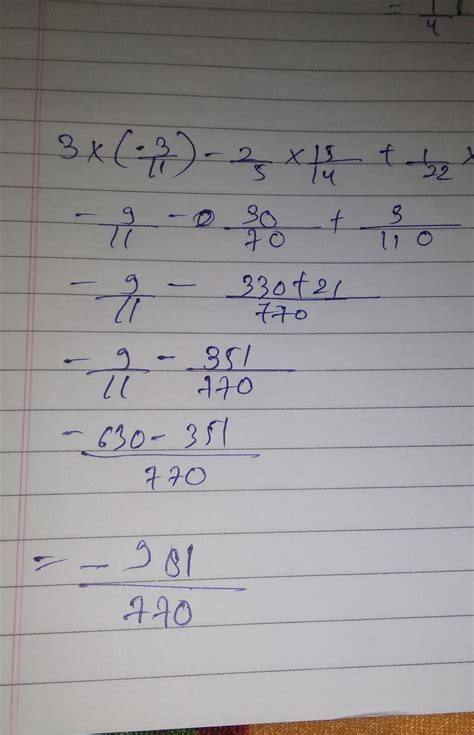 = 1/4
3 × (-3/11) - 2/5 × 15/14 + 1/22 ×
- 9/11 - 30/70 + 3/110
- 9/11 - 330+21/770
- 9/11 - 351/770
- 630 - 351/770
= - 981/770